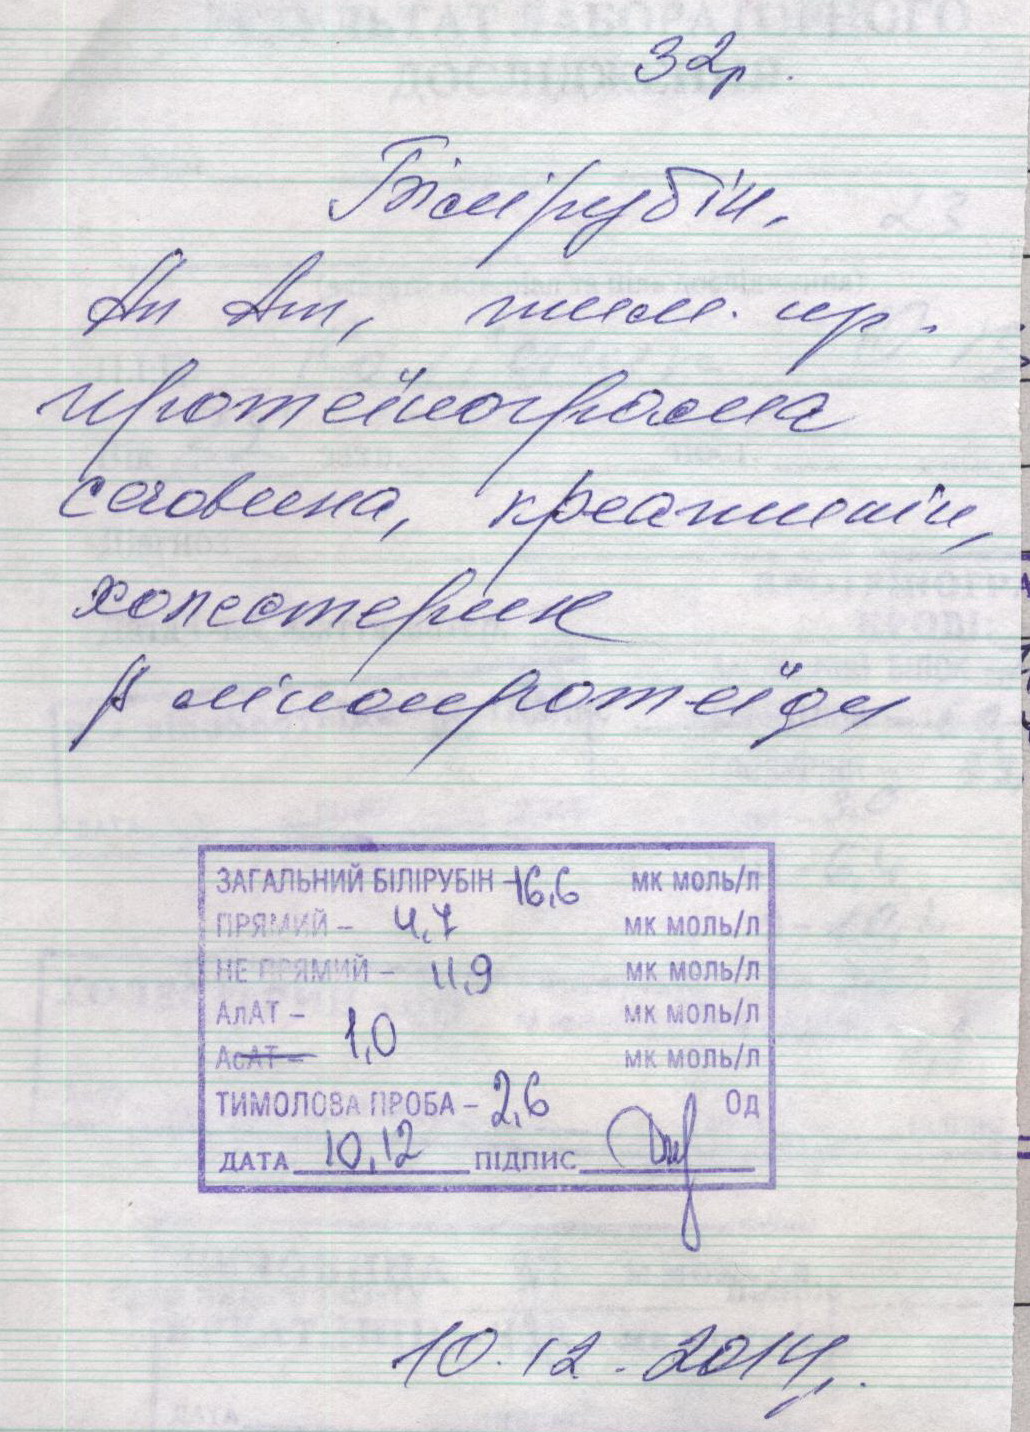 32р.
Білірубін,
Ал Ат, тим. пр.
протеїнограма
сечовина, креатинін,
холестерин
β ліпопротеїди
ЗАГАЛЬНИЙ БІЛІРУБІН – 16,6 мк моль/л
ПРЯМИЙ – 4,7 мк моль/л
НЕ ПРЯМИЙ – 11,9 мк моль/л
АлАТ – 1,0 мк моль/л
АсАТ – мк моль/л
ТИМОЛОВА ПРОБА – 2,6 Од
ДАТА 10,12 ПІДПИС
10.12.2014р.